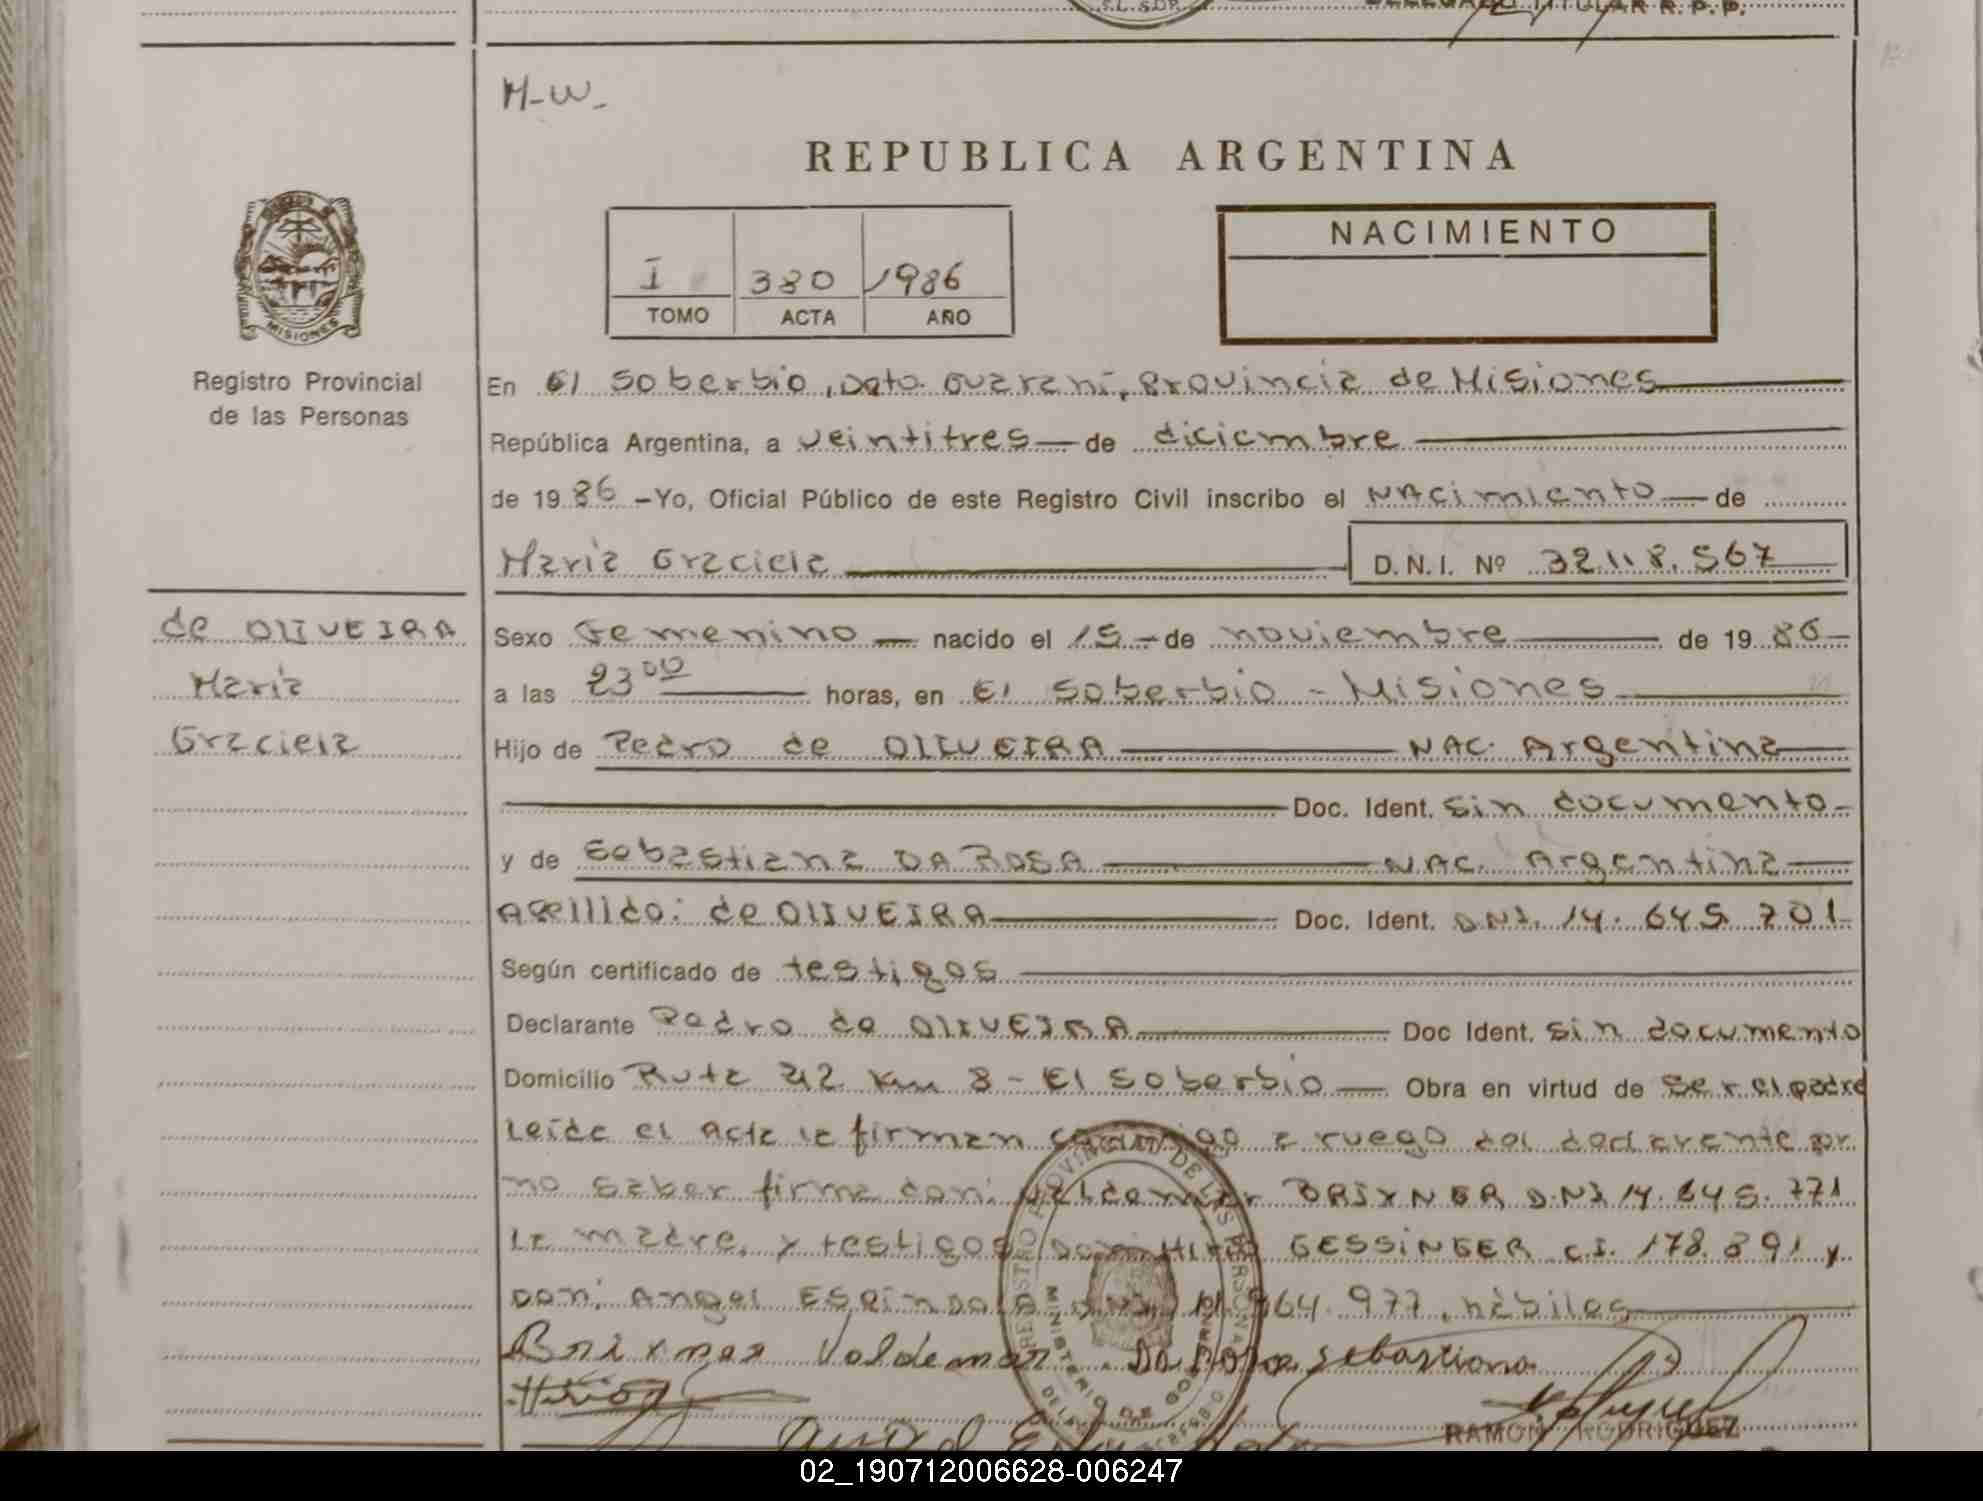 DELEGADO TITULAR R. P. P.
M-W-
REPUBLICA ARGENTINA
MISIONES
Registro Provincial
de las Personas
I 380 1986
TOMO ACTA AÑO
NACIMIENTO
En El Soberbio, Dpto. Guaraní, Provincia de Misiones
República Argentina, a veintitres de diciembre
de 19 86 - Yo, Oficial Público de este Registro Civil inscribo el NAcimiento de
Maria Graciela D.N.I. Nº 32.118.567
de OLIVEIRA
Maria
Graciela
Sexo Femenino nacido el 15 de noviembre de 19 86
a las 23 00 horas, en El Soberbio - Misiones
Hijo de Pedro de OLIVEIRA NAC. Argentina
Doc. Ident. Sin documento
y de Sebastiana DA ROSA NAC. Argentina
Apellido: de OLIVEIRA Doc. Ident. DNI. 14.645.701
Según certificado de testigos
Declarante Pedro de OLIVEIRA Doc Ident. Sin documento
Domicilio Ruta 212 Km 8 - El Soberbio Obra en virtud de Ser el padre
Leída el acta la firman conmigo a ruego del declarante por
no saber firma don: Valdemar BRIXNER D.NI. 14.645.771
la madre, y testigos Don: GESSINGER C.I. 178.891 y
Don: Angel ESPINDOLA DNI 964.977, hábiles
Brixner Valdemar Da Rosa Sebastiana
RAMON RODRIGUEZ
REGISTRO PROVINCIAL DE LAS PERSONAS
MINISTERIO DE GOBIERNO
02_190712006628-006247